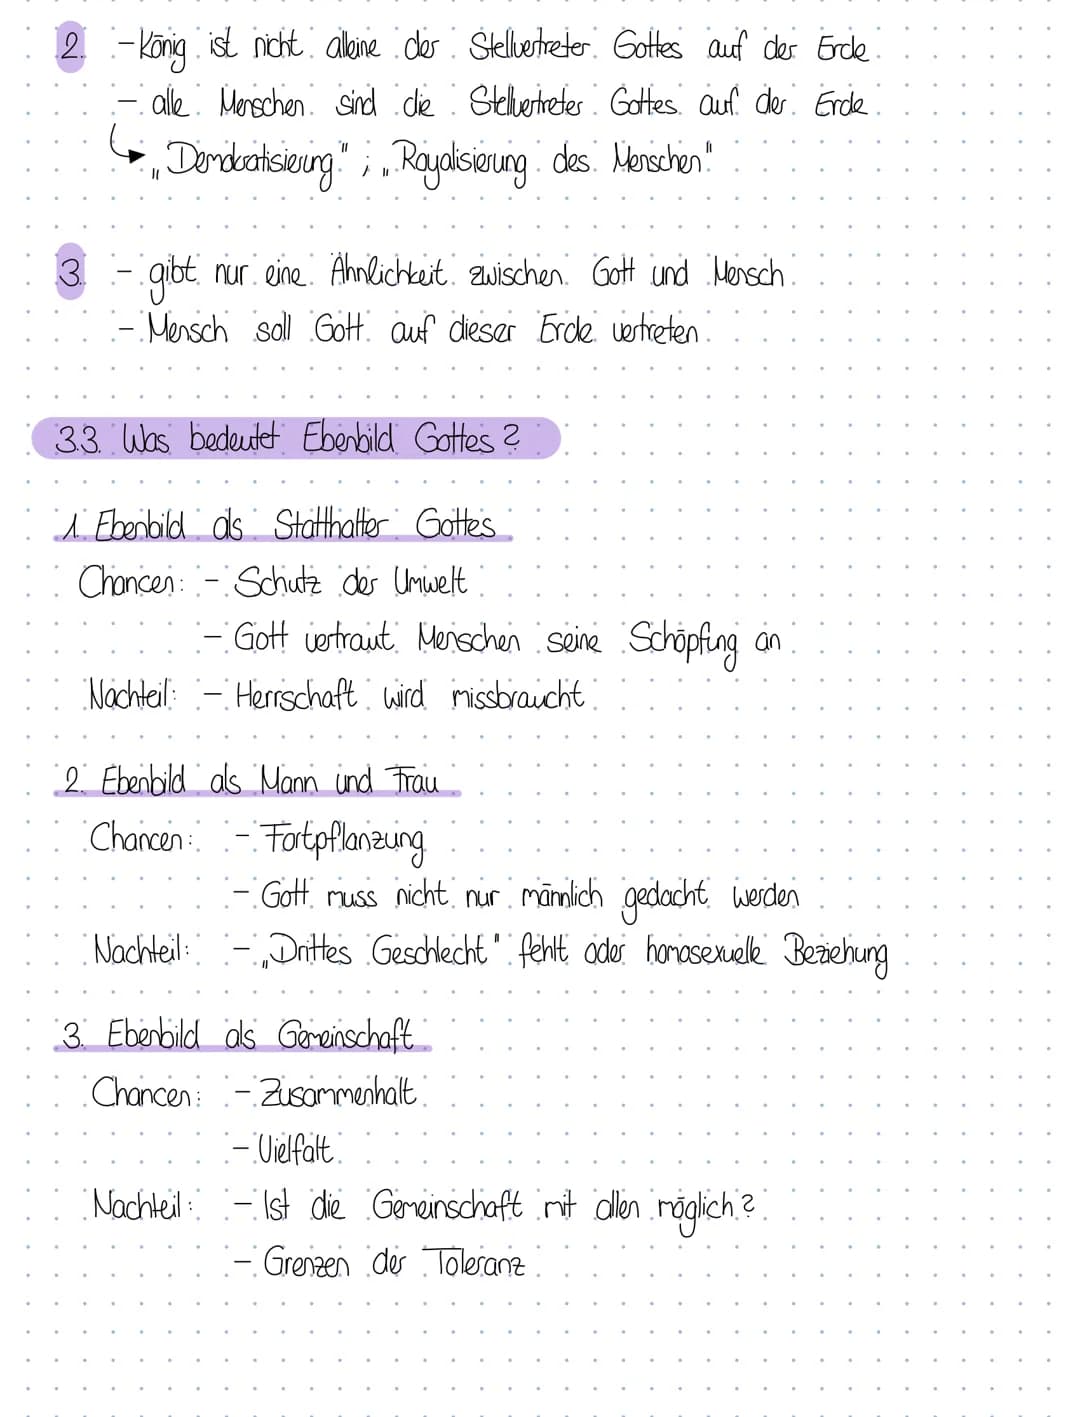 2. - König ist nicht alleine der Stellvertreter Gottes auf der Erde
- alle Menschen sind die Stellvertreter Gottes auf der Erde
↳ „Demokratisierung"; „Royalisierung des Menschen"
3. - gibt nur eine Ähnlichkeit zwischen Gott und Mensch
- Mensch soll Gott auf dieser Erde vertreten
3.3. Was bedeutet Ebenbild Gottes?
1. Ebenbild als Statthalter Gottes
Chancen: - Schutz der Umwelt
- Gott vertraut Menschen seine Schöpfung an
Nachteil: - Herrschaft wird missbraucht
2. Ebenbild als Mann und Frau
Chancen: - Fortpflanzung
- Gott muss nicht nur männlich gedacht werden
Nachteil: - „Drittes Geschlecht" fehlt oder homosexuelle Beziehung
3. Ebenbild als Gemeinschaft
Chancen: - Zusammenhalt
- Vielfalt
Nachteil: - Ist die Gemeinschaft mit allen möglich?
- Grenzen der Toleranz